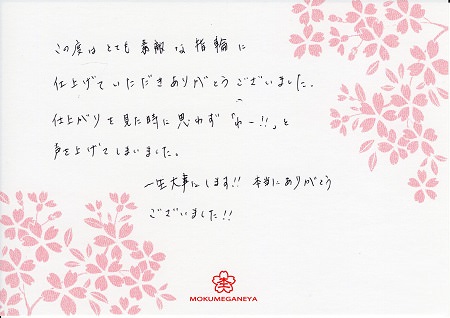 この度はとても素敵な指輪に
仕上げていただきありがとうございました。
仕上がりを見た時に思わず「わー!!」と
声を上げてしまいました。
一生大事にします!! 本当にありがとう
ございました!!
MOKUMEGANEYA